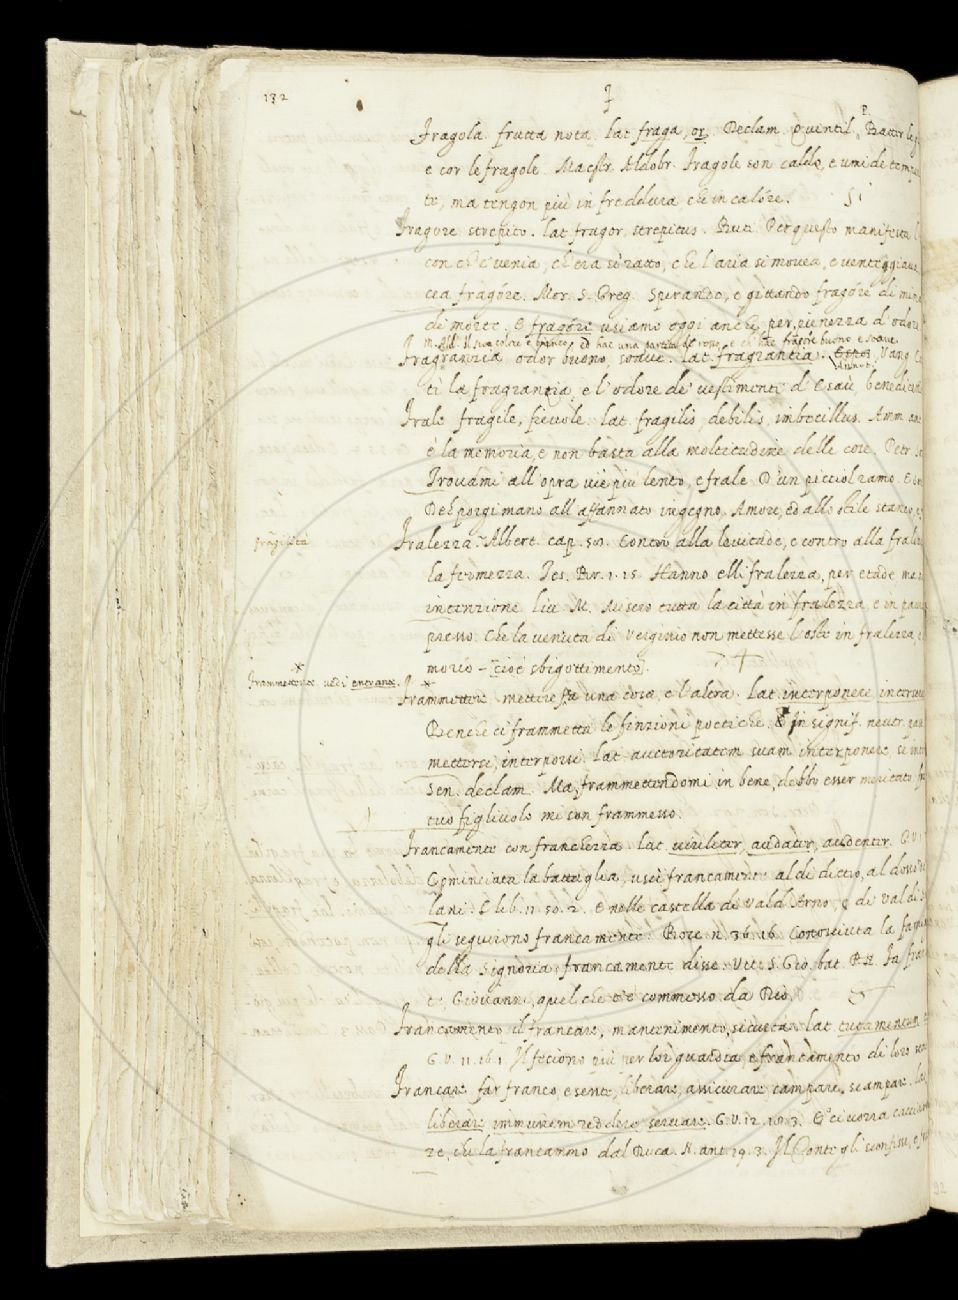 132
F
Fragola frutta nota. lat. fraga, or. Declam. Quintil. P. Batter le
e cor le fragole. Maestr. Aldobr. Fragole son calde, e umide tempe
te, ma tengon più in freddura che in calóre.
Fragore strepito. lat. fragor, strepitus. But. Per questo manifesta
con che e' venia, ch'era sì ratto, che l'aria si movea, e venteggiava
cea fragóre. Mor. S. Greg. Sperando, e gittando fragóre di
di morte. E fragóre usiamo oggi anche per pienezza d'odore
M. Ald. il suo colore è bianco, ed hae una partita di rosso, e ch'hae fragore buono e soave
Fragranzia odor buono, soave. lat. fragrantia. Vang.
ti la fragranzia, e l'odore de' vestimenti d'Esaù, benedicen
Frale fragile, fievole. lat. fragilis, debilis, imbecillus. Amm. ant.
è la memoria, e non basta alla moltitudine delle cose. Petr.
Trovàmi all'opra vie più lento, e frale D'un picciol ramo.
Deh porgi mano all'affannato ingegno, Amore, ed allo stile stanco, e
fragilità
Fralezza. Albert. cap. 50. Contro alla levitade, e contro alla fralez
la fermezza. Tes. Br. 1. 15. Hanno elli fralezza, per etade
intenzione. Liv. M. Misero tutta la città in fralezza, e in pau
presso. Che la venuta di Verginio non mettesse l'oste in fralezza,
morìo - cioè sbigottimento.
* frammettere vedi entrare.
* Frammettere mettere fra una cosa, e l'altra. lat. interponere
Benche ci frammetta le finzioni poetiche. & in signif. neutr. pass.
mettersi, interporsi. lat. auctoritatem suam interponere, se
Sen. declam. Ma, frammettendomi in bene, debbo esser meritato
tuo figliuolo mi con frammesso.
Francamente con franchezza. lat. viriliter, audacter, audenter. G. V.
Cominciata la battaglia, uscì francamente al di dietro, al dosso
lani. E lib. 11. 50. 2. E nelle castella di Vald'Arno, e di Val di
gli seguirono francamente. Bocc. n. 36. 16. Conosciuta la
della Signoria, francamente disse. Vit. S. Gio. bat. P. N. Fa
te, Giovanni, quel che t'è commesso da Dio.
Francamento il francare, mantenimento, sicurtà. lat. tutamentum
G. V. 11. 16. 1. Il feciono più per lor guardia, e francamento di loro
Francare far franco e sente, liberare, assicurare, campare, scampare. lat.
liberare, immunem reddere, servare. G. V. 12. 108. 3. E ci vorrà
re, chi la francammo dal Duca. N. ant. 19. 3. Il Conte gli sconfisse, e